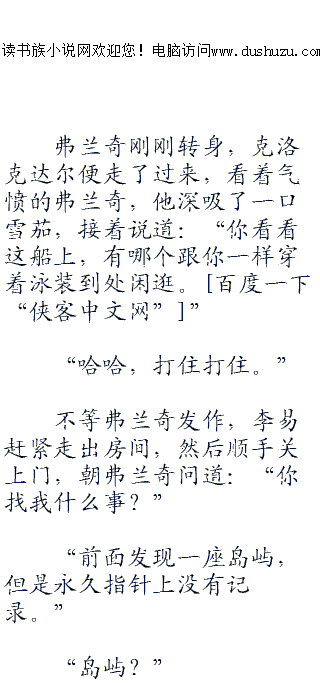 读书族小说网欢迎您！电脑访问www.dushuzu.com
弗兰奇刚刚转身，克洛
克达尔便走了过来，看着气
愤的弗兰奇，他深吸了一口
雪茄，接着说道：“你看看
这船上，有哪个跟你一样穿
着泳装到处闲逛。[百度一下
“侠客中文网”]”
“哈哈，打住打住。”
不等弗兰奇发作，李易
赶紧走出房间，然后顺手关
上门，朝弗兰奇问道：“你
找我什么事？”
“前面发现一座岛屿，
但是永久指针上没有记
录。”
“岛屿？”